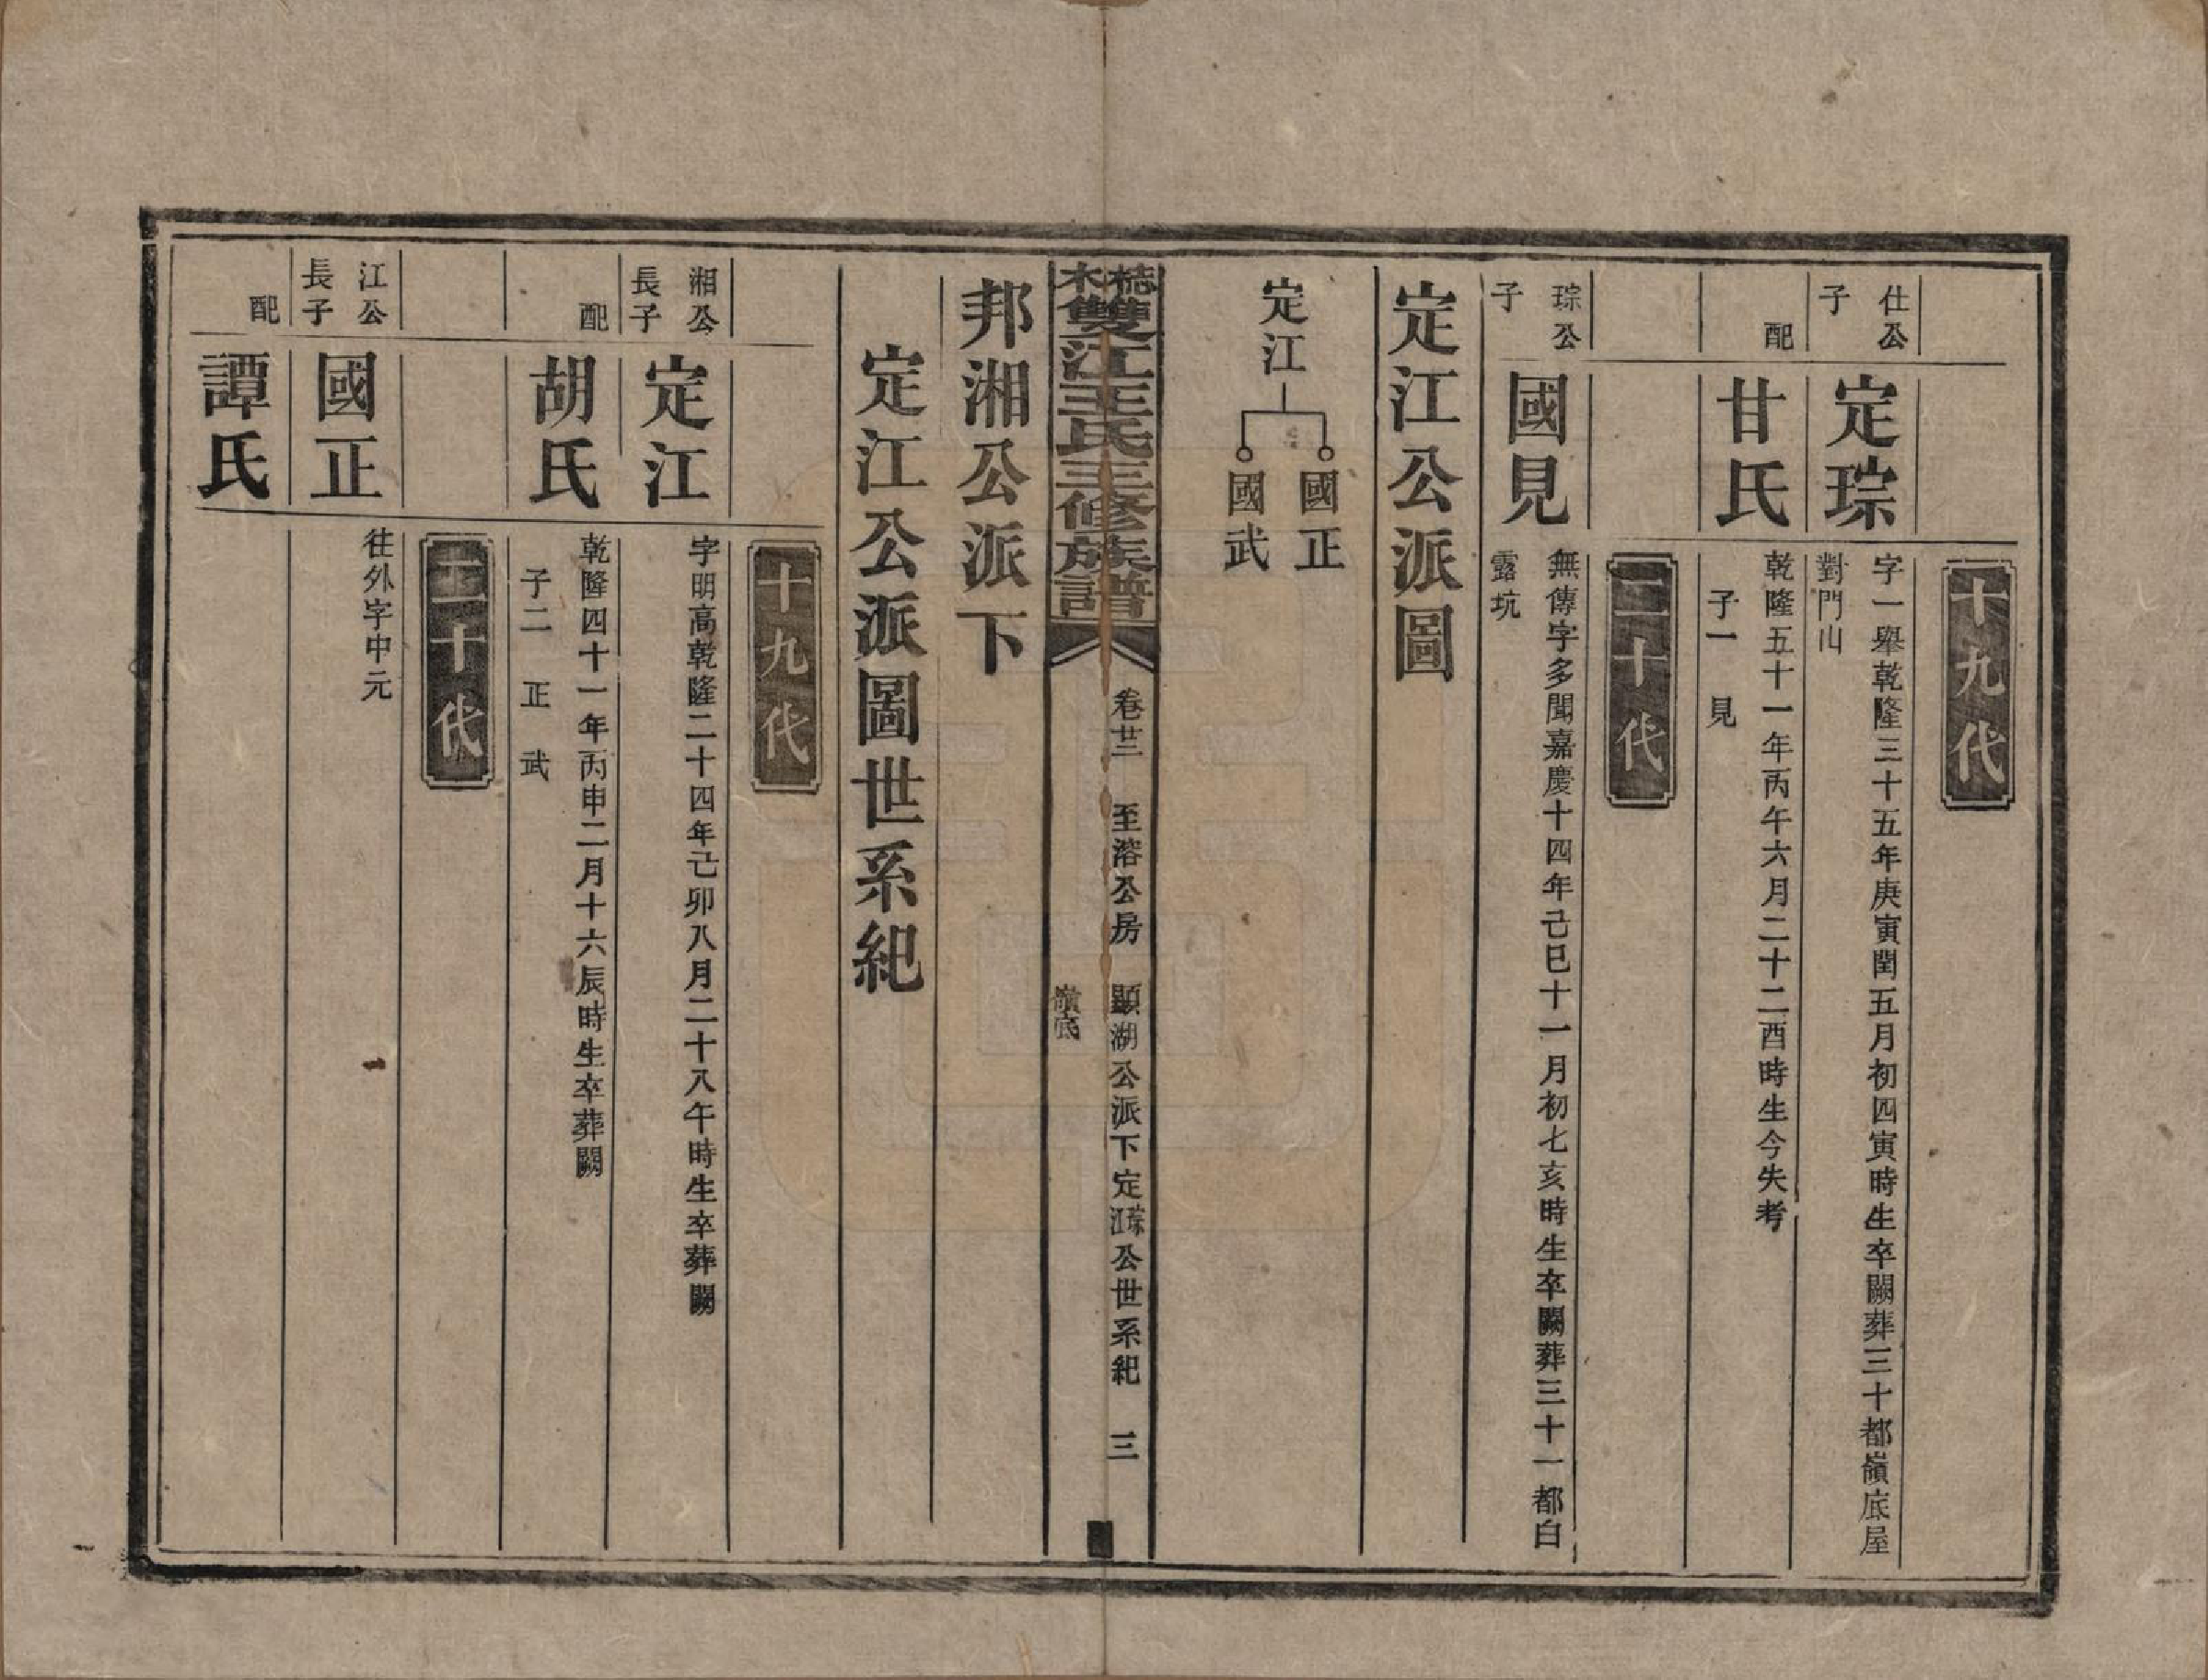 十九代
仕公子
定琮
字一舉乾隆三十五年庚寅閏五月初四寅時生卒闕葬三十都嶺底屋
對門山
配
甘氏
乾隆五十一年丙午六月二十二酉時生今失考
子一　見
二十代
琮公子
國見
無傳字多聞嘉慶十四年己巳十一月初七亥時生卒闕葬三十一都白
露坑
定江公派圖
定江
國正
國武
雙江王氏三修族譜
卷廿二　至溶公房　顯湖公派下定琮江公世系紀　三
嶺底
邦湘公派下
定江公派圖世系紀
十九代
湘公長子
定江
字明高乾隆二十四年己卯八月二十八午時生卒葬闕
配
胡氏
乾隆四十一年丙申二月十六辰時生卒葬闕
子二　正　武
二十代
江公長子
國正
往外字中元
配
譚氏